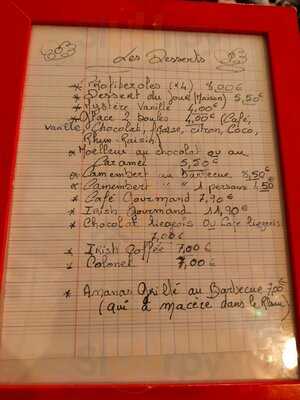 Les Desserts
* Profiteroles (x4) 8,00€
* Dessert du jour (Maison) 5,50€
* Mystère Vanille 4,00€
* Glace 2 boules 4,00€ (Café,
vanille, Chocolat, fraise, citron, Coco,
Rhum-Raisin)
* Moelleux au chocolat ou au
Caramel 5,50€
* Camembert au Barbecue 8,50€
* Camembert " " 1 personne 4,50
* Café Gourmand 7,90€
* Irish Gourmand 11,90€
* Chocolat Liégeois Ou Café Liégeois
7,00€
* Irish Coffée 7,00€
* Colonel 7,00€
* Ananas Grillé au Barbecue 7,00€
(qui a macéré dans le Rhum)